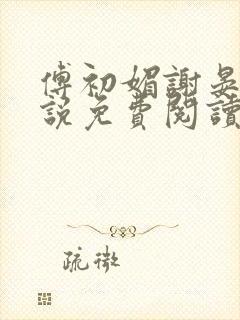 傅初媚謝晏
說免費閱讀
疏微